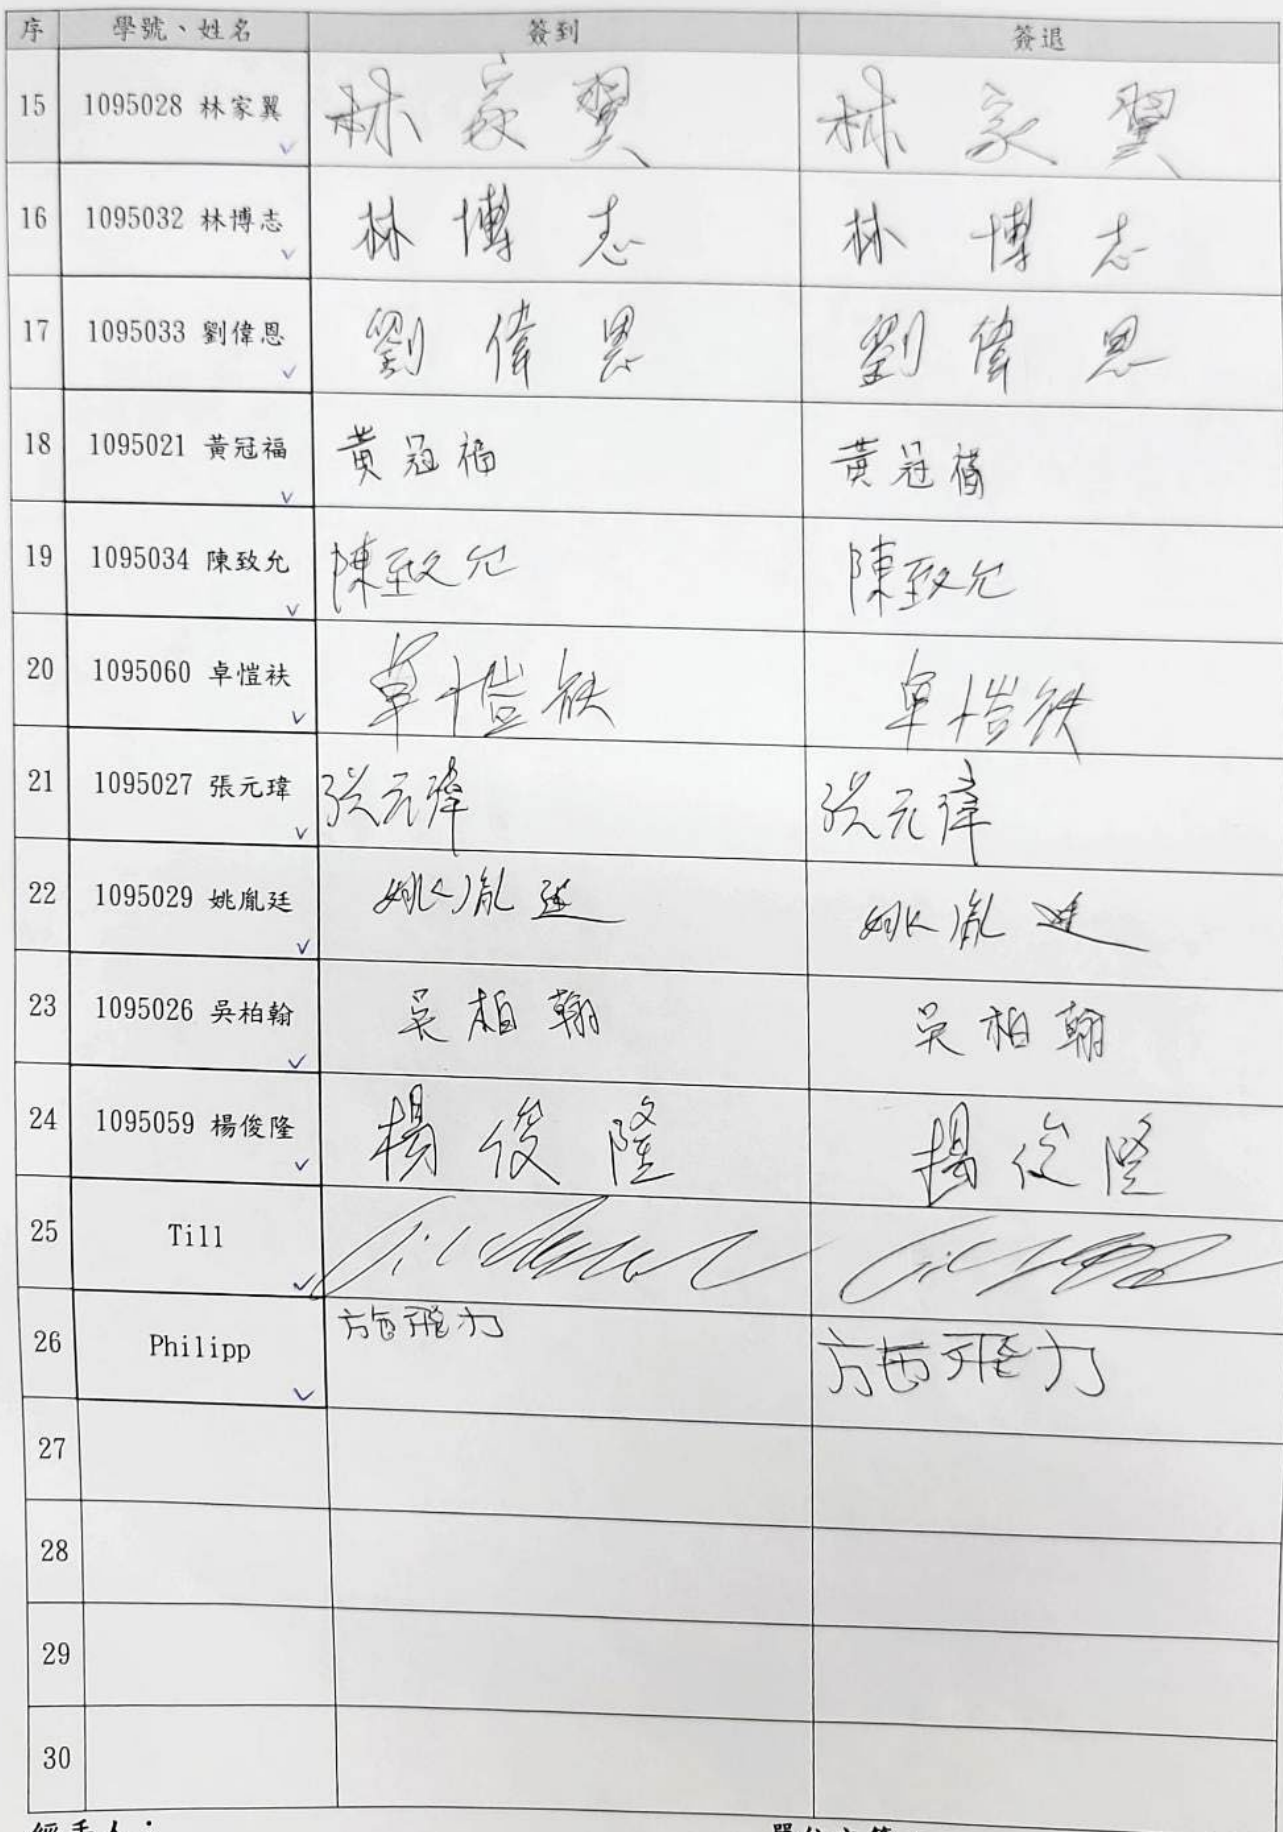 序 學號、姓名 簽到 簽退
15 1095028 林家翼 林家翼 林家翼
16 1095032 林博志 林博志 林博志
17 1095033 劉偉恩 劉偉恩 劉偉恩
18 1095021 黃冠福 黃冠福 黃冠福
19 1095034 陳致允 陳致允 陳致允
20 1095060 卓愷祆 卓愷祆 卓愷祆
21 1095027 張元瑋 張元瑋 張元瑋
22 1095029 姚胤廷 姚胤廷 姚胤廷
23 1095026 吳柏翰 吳柏翰 吳柏翰
24 1095059 楊俊隆 楊俊隆 楊俊隆
25 Till
26 Philipp 施飛力 施飛力
27
28
29
30
經手人：